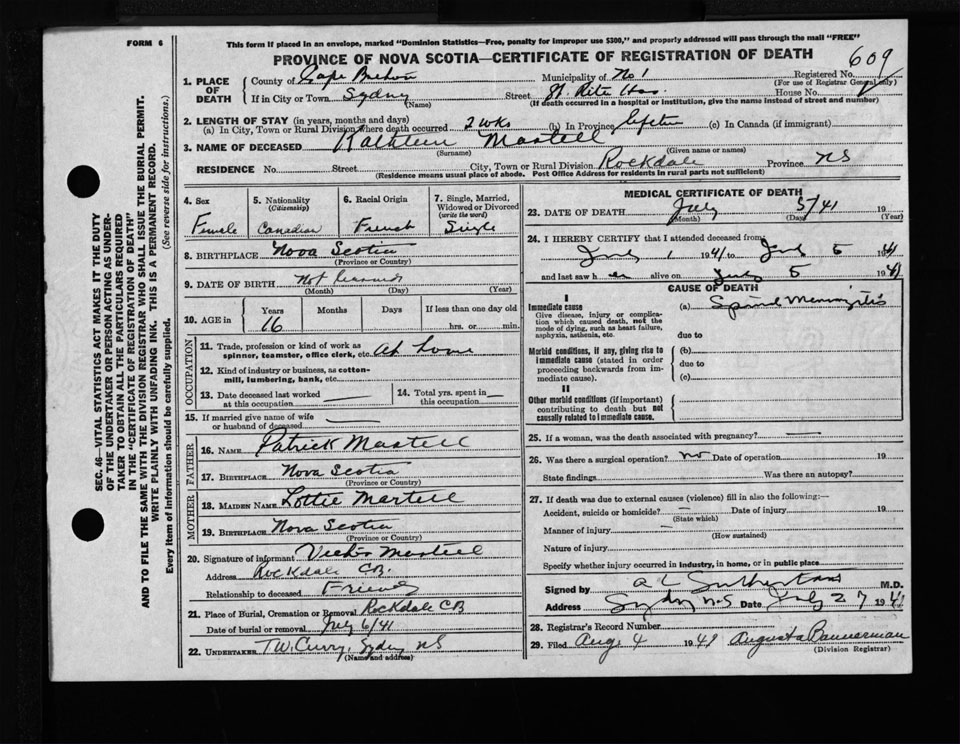 FORM 6
This form if placed in an envelope, marked "Dominion Statistics—Free, penalty for improper use $300," and properly addressed will pass through the mail "FREE"
PROVINCE OF NOVA SCOTIA—CERTIFICATE OF REGISTRATION OF DEATH
609
SEC. 46—VITAL STATISTICS ACT MAKES IT THE DUTY
OF THE UNDERTAKER OR PERSON ACTING AS UNDER-
TAKER TO OBTAIN ALL THE PARTICULARS REQUIRED
IN THE "CERTIFICATE OF REGISTRATION OF DEATH"
AND TO FILE THE SAME WITH THE DIVISION REGISTRAR WHO SHALL ISSUE THE BURIAL PERMIT.
WRITE PLAINLY WITH UNFADING INK. THIS IS A PERMANENT RECORD.
Every item of Information should be carefully supplied. (See reverse side for instructions.)
1. PLACE OF DEATH
County of Cape Breton Municipality of No 1 Registered No.
(For use of Registrar General only)
If in City or Town Sydney Street St. Rita Hos. House No.
(Name) (If death occurred in a hospital or institution, give the name instead of street and number)
2. LENGTH OF STAY (in years, months and days)
(a) In City, Town or Rural Division where death occurred 2 wks (b) In Province (c) In Canada (if immigrant)
3. NAME OF DECEASED Kathleen Martell
(Surname) (Given name or names)
RESIDENCE No. Street City, Town or Rural Division Rockdale Province NS
(Residence means usual place of abode. Post Office Address for residents in rural parts not sufficient)
4. Sex
Female
5. Nationality
(Citizenship)
Canadian
6. Racial Origin
French
7. Single, Married,
Widowed or Divorced
(write the word)
Single
8. BIRTHPLACE Nova Scotia
(Province or Country)
9. DATE OF BIRTH Not
(Month) (Day) (Year)
10. AGE in Years Months Days If less than one day old
16 hrs. or min.
OCCUPATION
11. Trade, profession or kind of work as
spinner, teamster, office clerk, etc. At home
12. Kind of industry or business, as cotton-
mill, lumbering, bank, etc.
13. Date deceased last worked
at this occupation —
14. Total yrs. spent in
this occupation —
15. If married give name of wife
or husband of deceased —
FATHER
16. NAME Patrick Martell
17. BIRTHPLACE Nova Scotia
(Province or Country)
MOTHER
18. MAIDEN NAME Lottie Martell
19. BIRTHPLACE Nova Scotia
(Province or Country)
20. Signature of informant Martell
Address Rockdale CB.
Relationship to deceased Friend
21. Place of Burial, Cremation or Removal Rockdale CB
Date of burial or removal July 6/41
22. UNDERTAKER T.W. Curry, Sydney NS
(Name and address)
MEDICAL CERTIFICATE OF DEATH
23. DATE OF DEATH July 5/41 19
(Month) (Day) (Year)
24. I HEREBY CERTIFY that I attended deceased from
July 1 1941 to July 5 1941
and last saw h er alive on July 5 1941
CAUSE OF DEATH
I
Immediate cause (a) Spinal Meningitis
Give disease, injury or complica-
tion which caused death, not the
mode of dying, such as heart failure,
asphyxia, asthenia, etc. due to
Morbid conditions, if any, giving rise to
immediate cause (stated in order
proceeding backwards from im-
mediate cause).
(b)
due to
(c)
II
Other morbid conditions (if important)
contributing to death but not
causally related to immediate cause.
25. If a woman, was the death associated with pregnancy? —
26. Was there a surgical operation? no Date of operation 19
State findings Was there an autopsy?
27. If death was due to external causes (violence) fill in also the following:—
Accident, suicide or homicide? — Date of injury 19
(State which)
Manner of injury —
(How sustained)
Nature of injury
Specify whether injury occurred in industry, in home, or in public place
Signed by A L Sutherland M.D.
Address Sydney N.S Date July 27 1941
28. Registrar's Record Number
29. Filed Aug. 4 1941 Augusta Bannerman
(Division Registrar)